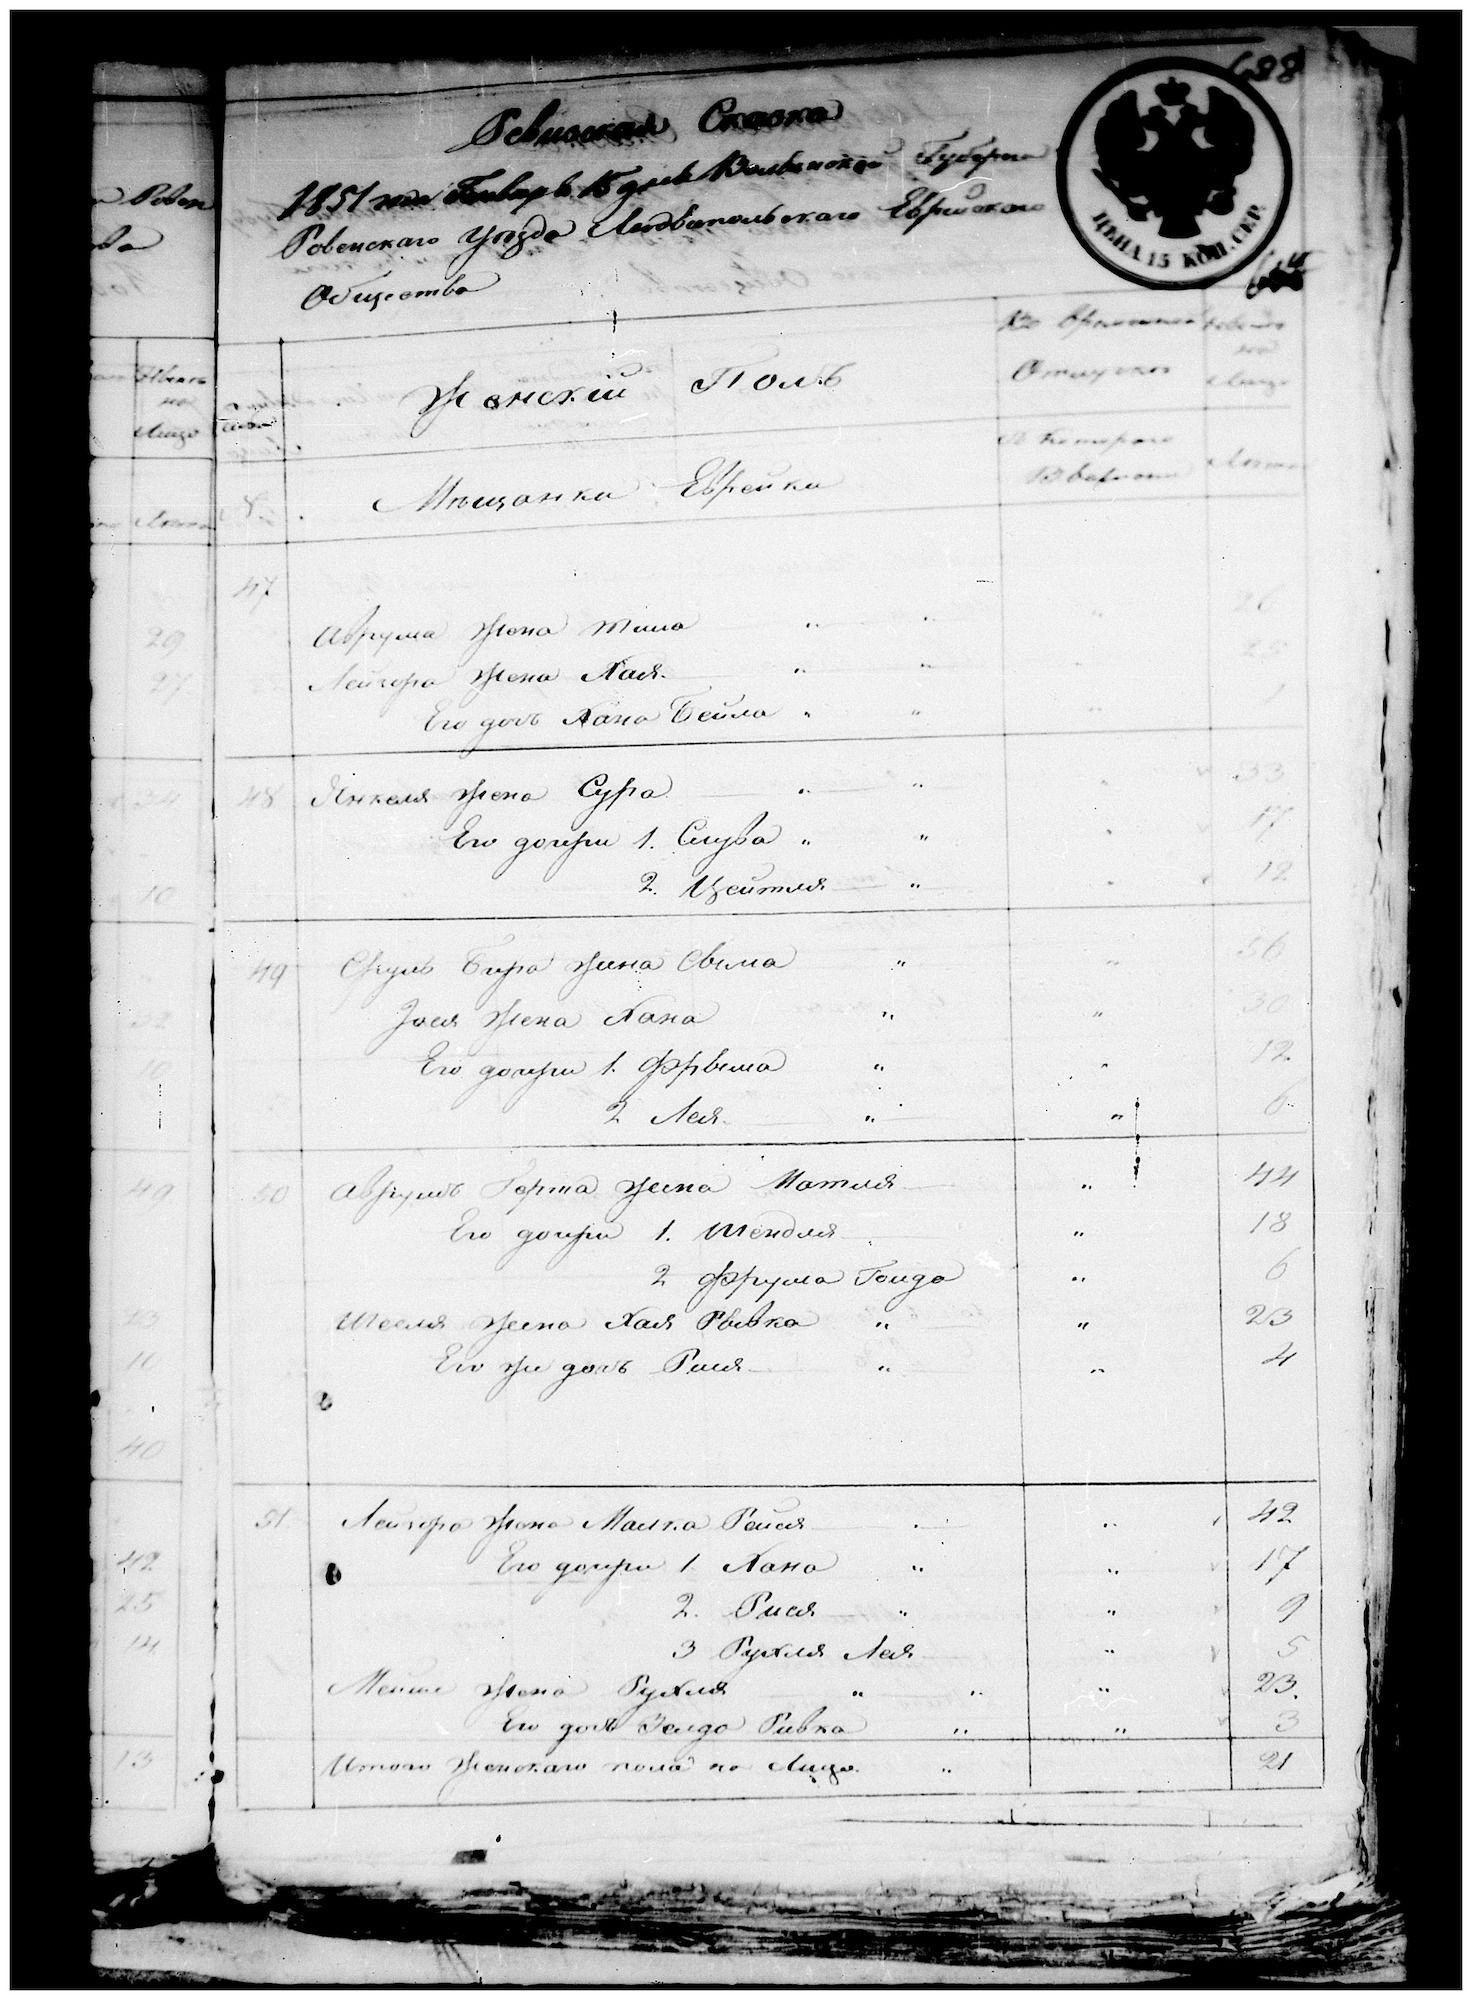 688
Ревизская Сказка
1851 года Генваря 15 дня Волынской Губернии
Ровенскаго уезда Людвипольскаго Еврейскаго
Общества
ЦЕНА 15 КОП. СЕР.
Женскій Полъ
Во временной
Отлучке
Лицо
Мещанки Еврейки
Съ котораго
Времени
Лета
47
Аврума жена 26
Лейзора жена Хая 25
Его дочь Хана Бейла 1
48 Янкеля жена Сура 33
Его дочери 1. Слува 17
2. Цейтля 12
49 Сруль Бера жена Свима 56
Зося жена Хана 30
Его дочери 1. Фрыма 12
2 Лея 6
50 Аврумъ Герша жена Матля 44
Его дочери 1. Шендля 18
2 Фрума Гольда 6
жена Хая Рывка 23
Его же дочь Рися 4
51 Лейзора жена Малка Рейзя 42
Его дочери 1 Хана 17
2. Рися 9
3 Рухля Лея 5
жена Рухля 23.
Его дочь Зелда Ривка 3
Итого Женскаго пола на Лицо 21
29
27
34
10
32
10
49
23
10
40
42
25
14
13